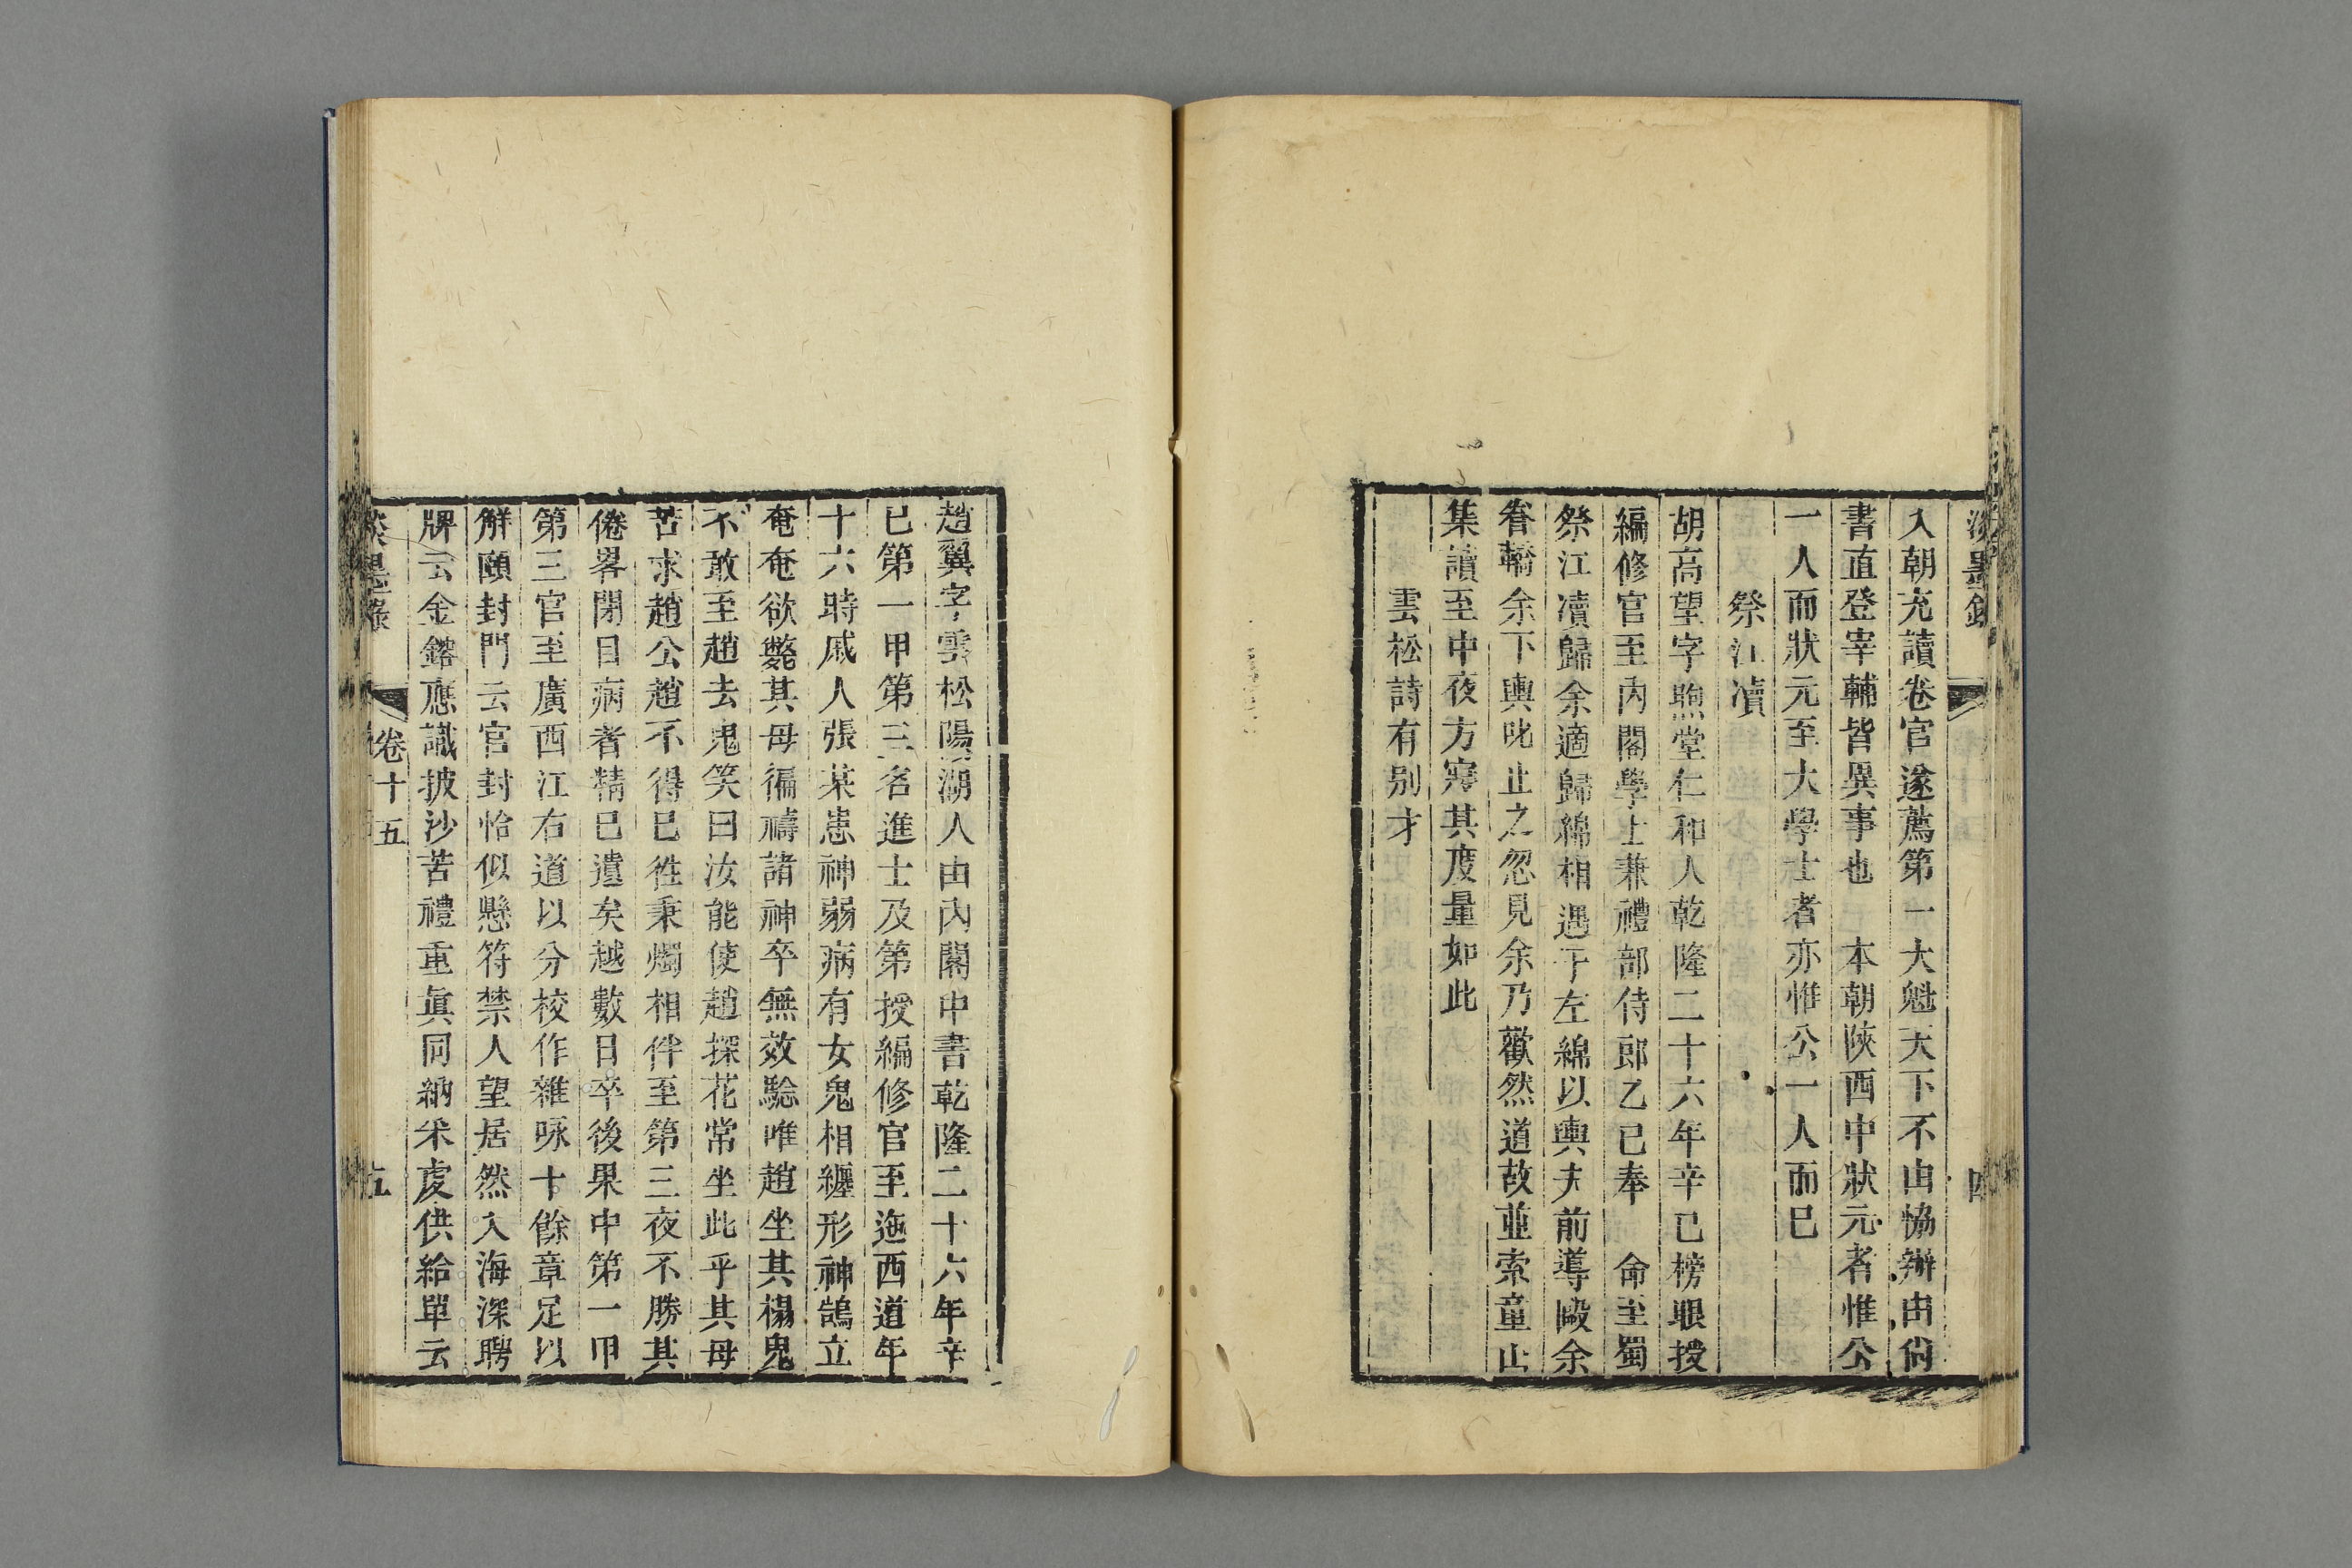 淡墨錄
四
入朝充讀卷官遂薦第一大魁天下不由協辦由尚
書直登宰輔皆異事也 本朝陝西中狀元者惟公
一人而狀元至大學士者亦惟公一人而已
祭江凟
胡高望字煦堂仁和人乾隆二十六年辛巳榜眼授
編修官至內閣學士兼禮部侍郎乙巳奉 命至蜀
祭江凟歸余適歸綿相遇于左綿以輿夫前導毆余
眷轎余下輿叱止之忽見余乃歡然道故並索童山
集讀至中夜方寢其度量如此
雲松詩有别才
趙翼字雲松陽湖人由內閣中書乾隆二十六年辛
巳第一甲第三名進士及第授編修官至迤西道年
十六時戚人張某患神弱病有女鬼相纏形神鵠立
奄奄欲斃其母徧禱諸神卒無效驗唯趙坐其榻鬼
不敢至趙去鬼笑曰汝能使趙探花常坐此乎其母
苦求趙公趙不得已徃秉燭相伴至第三夜不勝其
倦畧閉目病者精已遺矣越數日卒後果中第一甲
第三官至廣西江右道以分校作雜咏十餘章足以
解頤封門云官封恰似懸符禁人望居然入海深聘
牌云金鎔應識披沙苦禮重眞同納采虔供給單云
淡墨錄
卷十五
五